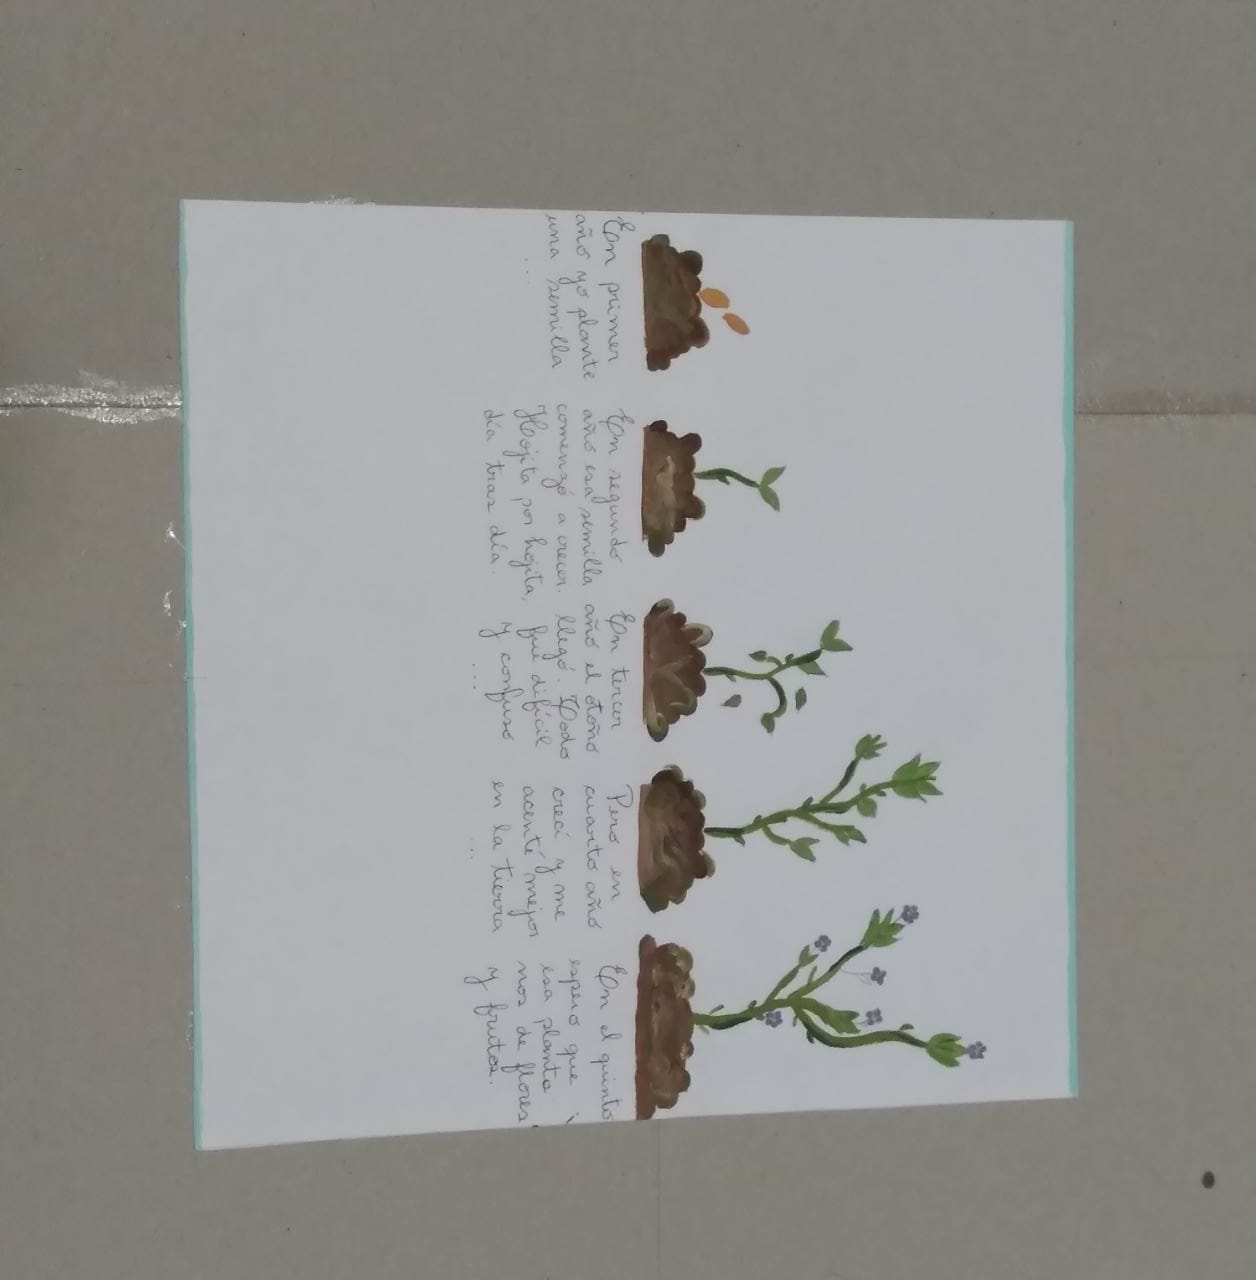 En primer
año yo plante
una semilla
...
En segundo
año esa semilla
comenzó a crecer.
Hojita por hojita,
día tras día.
En tercer
año el otoño
llegó. Todo
fue difícil
y confuso
...
Pero en
cuarto año
crecí y me
acenté mejor
en la tierra
...
En el quinto
espero que
esa planta
nos de flores
y frutos.